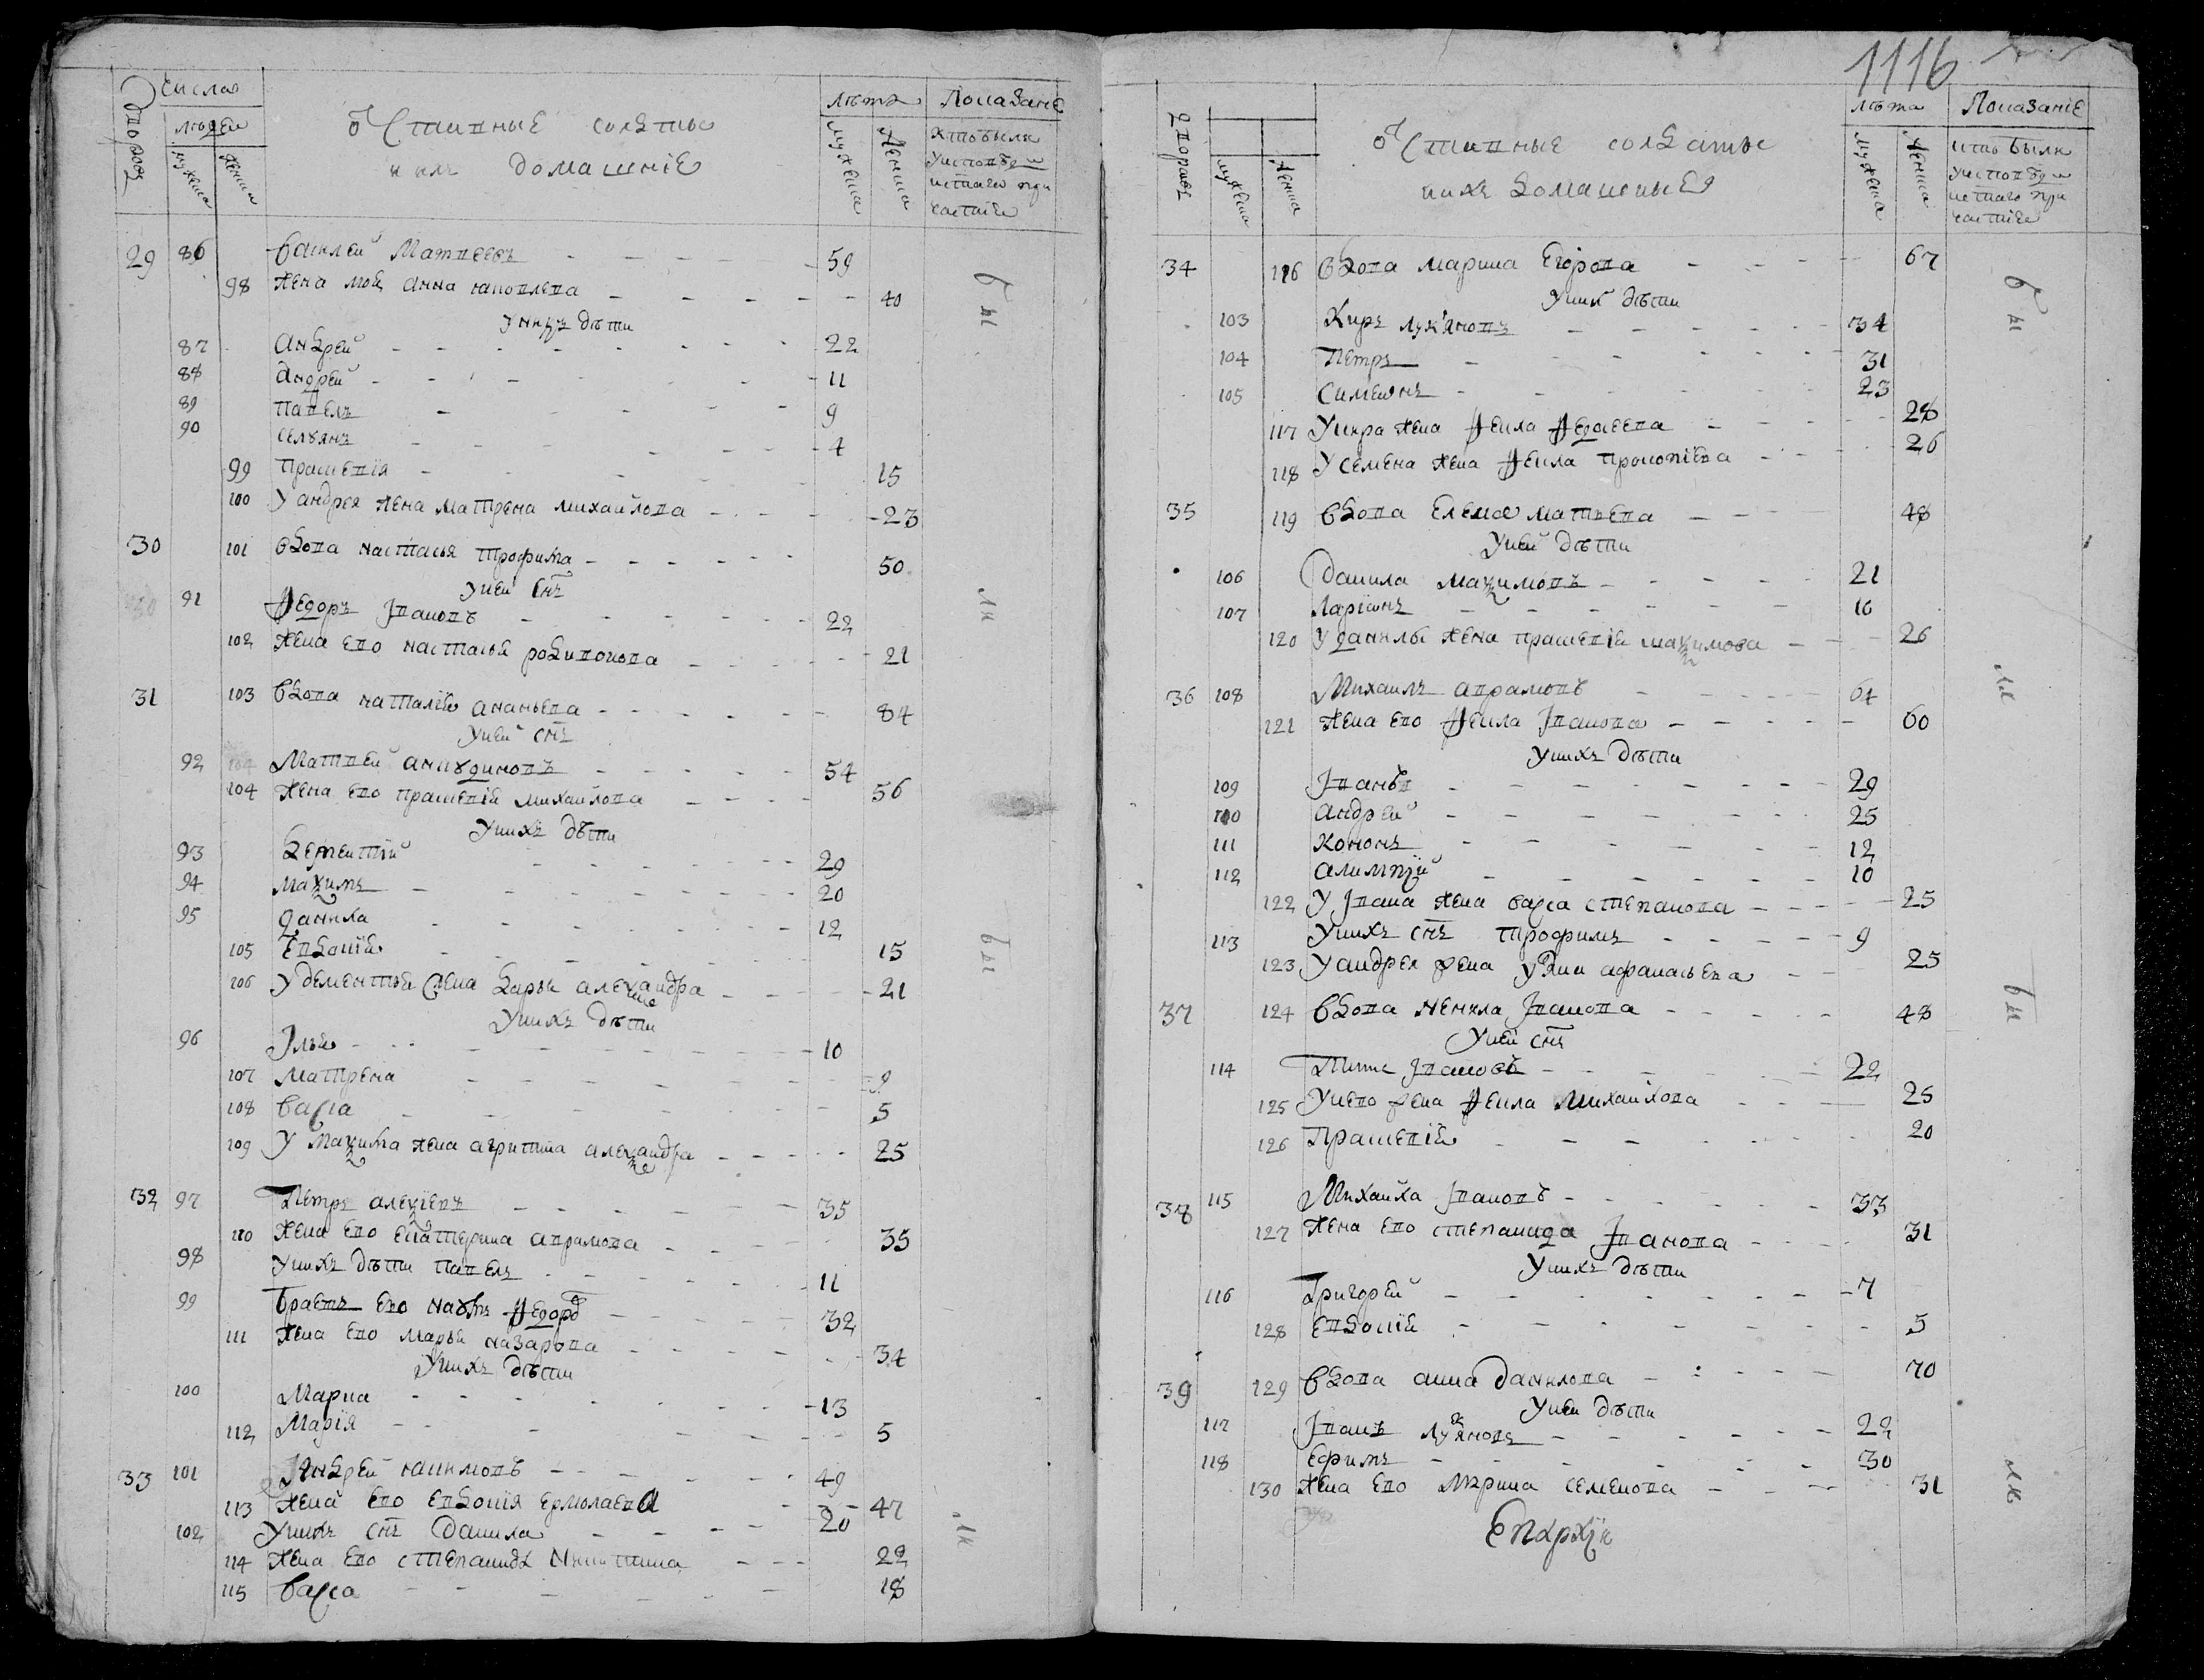 числа
людей
дворовъ
мужеска
женска
лѣта
мужеска
женска
Показание
кто были
у исповеди
и святаго при
частия
Отставные солдаты
и ихъ домашние
29 86 Василей Матвеевъ 59
98 жена ево Анна Яковлева 40
у нихъ дѣти
87 Андрей 22
88 Андрей 11
89 Павелъ 9
90 Селуянъ 4
99 Прасковия 15
100 У Андрея жена Матрена Михайлова 23
30 101 Вдова Настасья Трофимова 50
у ней снъ
91 Федоръ Ивановъ 22
102 жена ево Настасья Родионова 21
31 103 Вдова Наталия Ананьева 84
у ней снъ
92 Матвей 54
104 жена ево Прасковия Михайлова 56
у нихъ дѣти
93 Дементий 29
94 Максимъ 20
95 Данила 12
105 Евдокия 15
106 У Дементья жена Дарья Александра 21
у нихъ дѣти
96 Илья 10
107 Матрена 9
108 Васса 5
109 У Максима жена Агрипина Александра 25
32 97 Петръ Алексѣевъ 35
110 жена ево Екатерина Аврамова 35
98 у нихъ дѣти Павелъ 11
99 Братъ ево Наумъ Федоръ 32
111 жена ево Марья Назарова 34
у нихъ дѣти
100 Марка 13
112 Мария 5
33 101 Андрей Якимовъ 49
113 жена ево Евдокия Ермолаева 47
102 у нихъ снъ Данила 20
114 жена ево Степанида Никитина 22
115 Васса 18
бы
ли
бы
ли
1116
дворовъ
мужеска
женска
Отставные солдаты
и ихъ домашныя
лѣта
мужеска
женска
Показание
кто были
у исповеди
и святаго при
частия
34 116 Вдова Марина Егорова 67
у ней дѣти
103 Киръ Лукьяновъ 34
104 Петръ 31
105 Симеонъ 23
117 У Кира жена Фекла 28
118 У Семена жена Фекла Прокопиева 26
35 119 Вдова Елена Матвева 48
у ней дѣти
106 Данила Максимовъ 21
107 Ларионъ 16
120 У Данилы жена Прасковия Максимова 26
36 108 Михаилъ Аврамовъ 64
121 жена ево Фекла Иванова 60
у нихъ дѣти
109 Иванъ 29
110 Андрей 25
111 Кононъ 12
112 Алимпий 10
122 У Ивана жена Васса Степанова 25
113 у нихъ снъ Трофимъ 9
123 У Андрея жена Афанасьева 25
37 124 Вдова Ненила Иванова 48
у ней снъ
114 Ивановъ 22
125 У нево жена Фекла Михайлова 25
126 Прасковия 20
38 115 Михайла Ивановъ 33
127 жена ево Степанида Иванова 31
у нихъ дѣти
116 Григорей 7
128 Евдокия 5
39 129 Вдова Анна Данилова 70
у ней дѣти
117 Иванъ Лукяновъ 22
118 Ефимъ 30
130 жена ево Ирина Семенова 31
Епархии
бы
ли
бы
ли